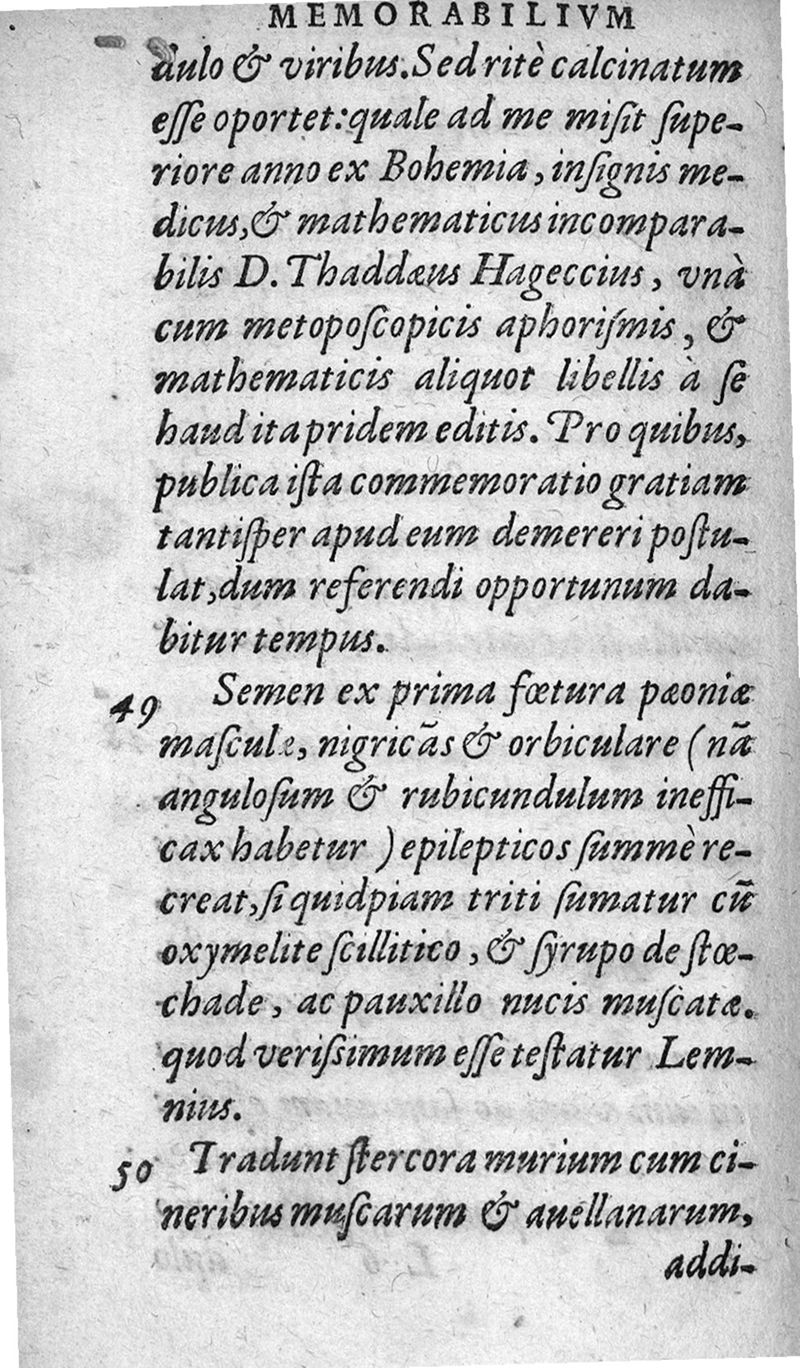 MEMORABILIVM
dulo & viribus. Sed ritè calcinatum
eſſe oportet: quale ad me miſit ſupe-
riore anno ex Bohemia, inſignis me-
dicus, & mathematicus incompara-
bilis D. Thaddæus Hageccius, vnà
cum metopoſcopicis aphoriſmis, &
mathematicis aliquot libellis à ſe
haud ita pridem editis. Pro quibus,
publica iſta commemoratio gratiam
tantiſper apud eum demereri poſtu-
lat, dum referendi opportunum da-
bitur tempus.
49 Semen ex prima fœtura pæoniæ
maſculæ, nigricãs & orbiculare (nã
anguloſum & rubicundulum ineffi-
cax habetur) epilepticos ſummè re-
creat, ſi quidpiam triti ſumatur cũ
oxymelite ſcillitico, & ſyrupo de ſtœ-
chade, ac pauxillo nucis muſcatæ.
quod veriſsimum eſſe teſtatur Lem-
nius.
50 Tradunt ſtercora murium cum ci-
neribus muſcarum & auellanarum,
addi-